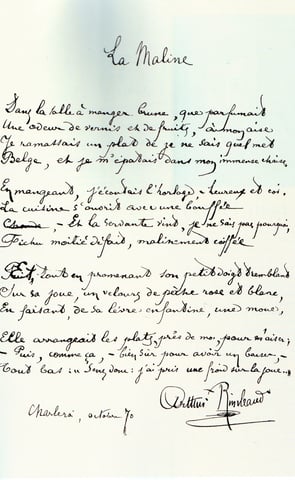 La Maline
Dans la salle à manger brune, que parfumait
Une odeur de vernis et de fruits, à mon aise
Je ramassais un plat de je ne sais quel met
Belge, et je m'épatais dans mon immense chaise.
En mangeant, j'écoutais l'horloge, - heureux et coi.
La cuisine s'ouvrit avec une bouffée
- Et la servante vint, je ne sais pas pourquoi,
Fichu moitié défait, malinement coiffée
Et, tout en promenant son petit doigt tremblant
Sur sa joue, un velours de pêche rose et blanc,
En faisant, de sa lèvre enfantine, une moue,
Elle arrangeait les plats, près de moi, pour m'aiser;
- Puis, comme ça, - bien sûr pour avoir un baiser, -
Tout bas: "Sens donc: j'ai pris une froid sur la joue..."
Charleroi, octobre 70
Arthur Rimbaud